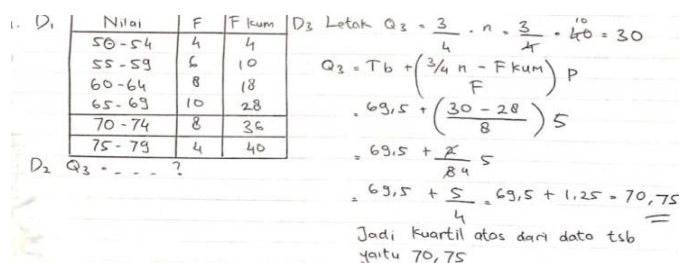 1. D₁
Nilai F F kum
50-54 4 4
55-59 6 10
60-64 8 18
65-69 10 28
70-74 8 36
75-79 4 40
D₂ Q₃ = . . . . ?
D₃ Letak Q₃ = 3/4 . n = 3/4 . 40 = 30
10
Q₃ = Tb + (3/4 n - F kum / F) P
= 69,5 + (30 - 28 / 8) 5
= 69,5 + 2/8 4 5
= 69,5 + 5/4 = 69,5 + 1,25 = 70,75
Jadi kuartil atas dari data tsb
yaitu 70,75